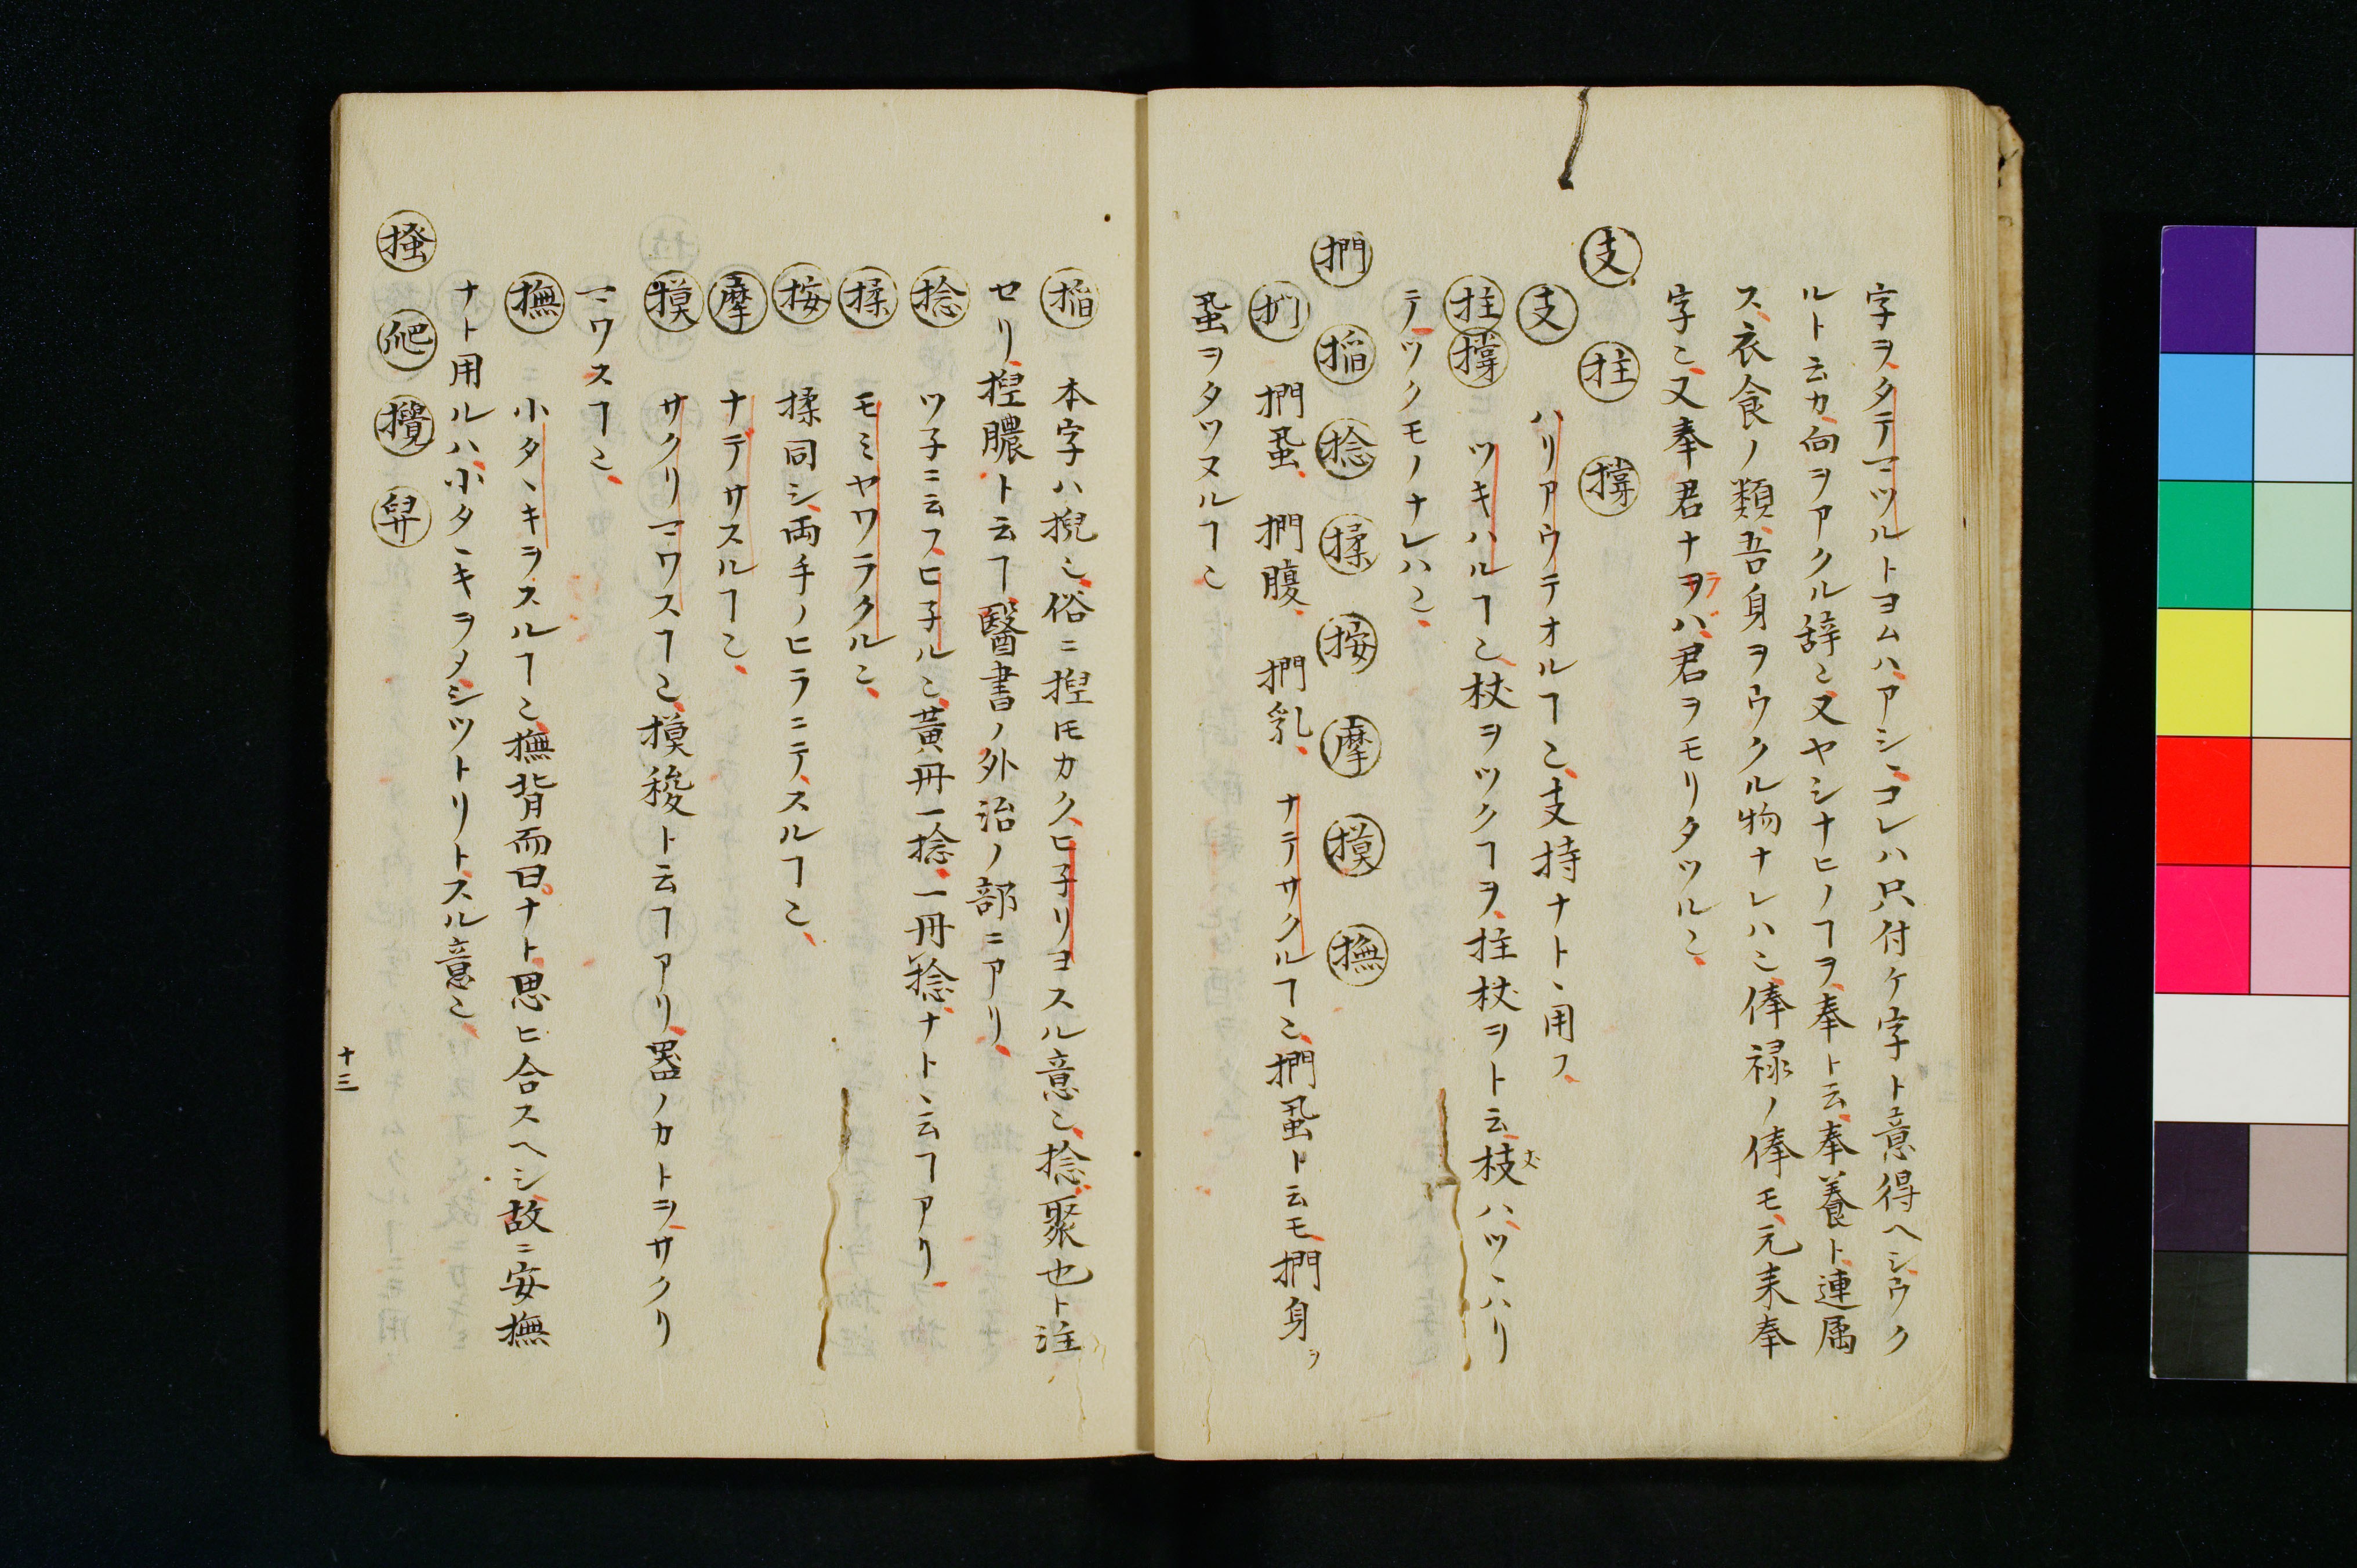 字ヲタテマツルトヨムハアシヽコレハ只付ケ字ト意得ヘシウク
ルト云カ向ヲアクル辞也又ヤシナヒノヿヲ奉ト云奉養ト連属
ス衣食ノ類吾身ヲウクル物ナレハ也俸禄ノ俸モ元来奉
字也又奉君ナヲラハ君ヲモリタツル也
支 拄 撑
支 ハリアウテオルヿ也支持ナトヽ用フ
拄撑 ツキハルヿ也杖ヲツクヿヲ拄杖ヲト云枝ハツヽハリ
テツクモノナレハ也
捫 搯 捻 揉 按 摩 摸 撫
捫 捫蝨 捫腹 捫乳 ナテサクルヿ也捫蝨ト云モ捫身ヲ
蝨ヲタツヌルヿ也
搯 本字ハ掜也俗ニ揑𪜈カクヒ子リヨスル意也捻聚也ト注
セリ揑膿ト云ヿ醫書ノ外治ノ部ニアリ
捻 ツ子ニ云フヒ子ル也黄冊一捻一冊捻ナトヽ云ヿアリ
揉 モミヤワラクル也
按 揉同シ両手ノヒラニテスルヿ也
摩 ナデサスルヿ也
摸 サクリマワスヿ也摸稜ト云ヿアリ器ノカトヲサクリ
マワスヿ也
撫 小タヽキヲスルヿ也撫背而曰ナト思ヒ合スヘシ故ニ安撫
ナト用ルハ小タヽキヲメシツトリトスル意也
搔 爬 攪 舁
十三